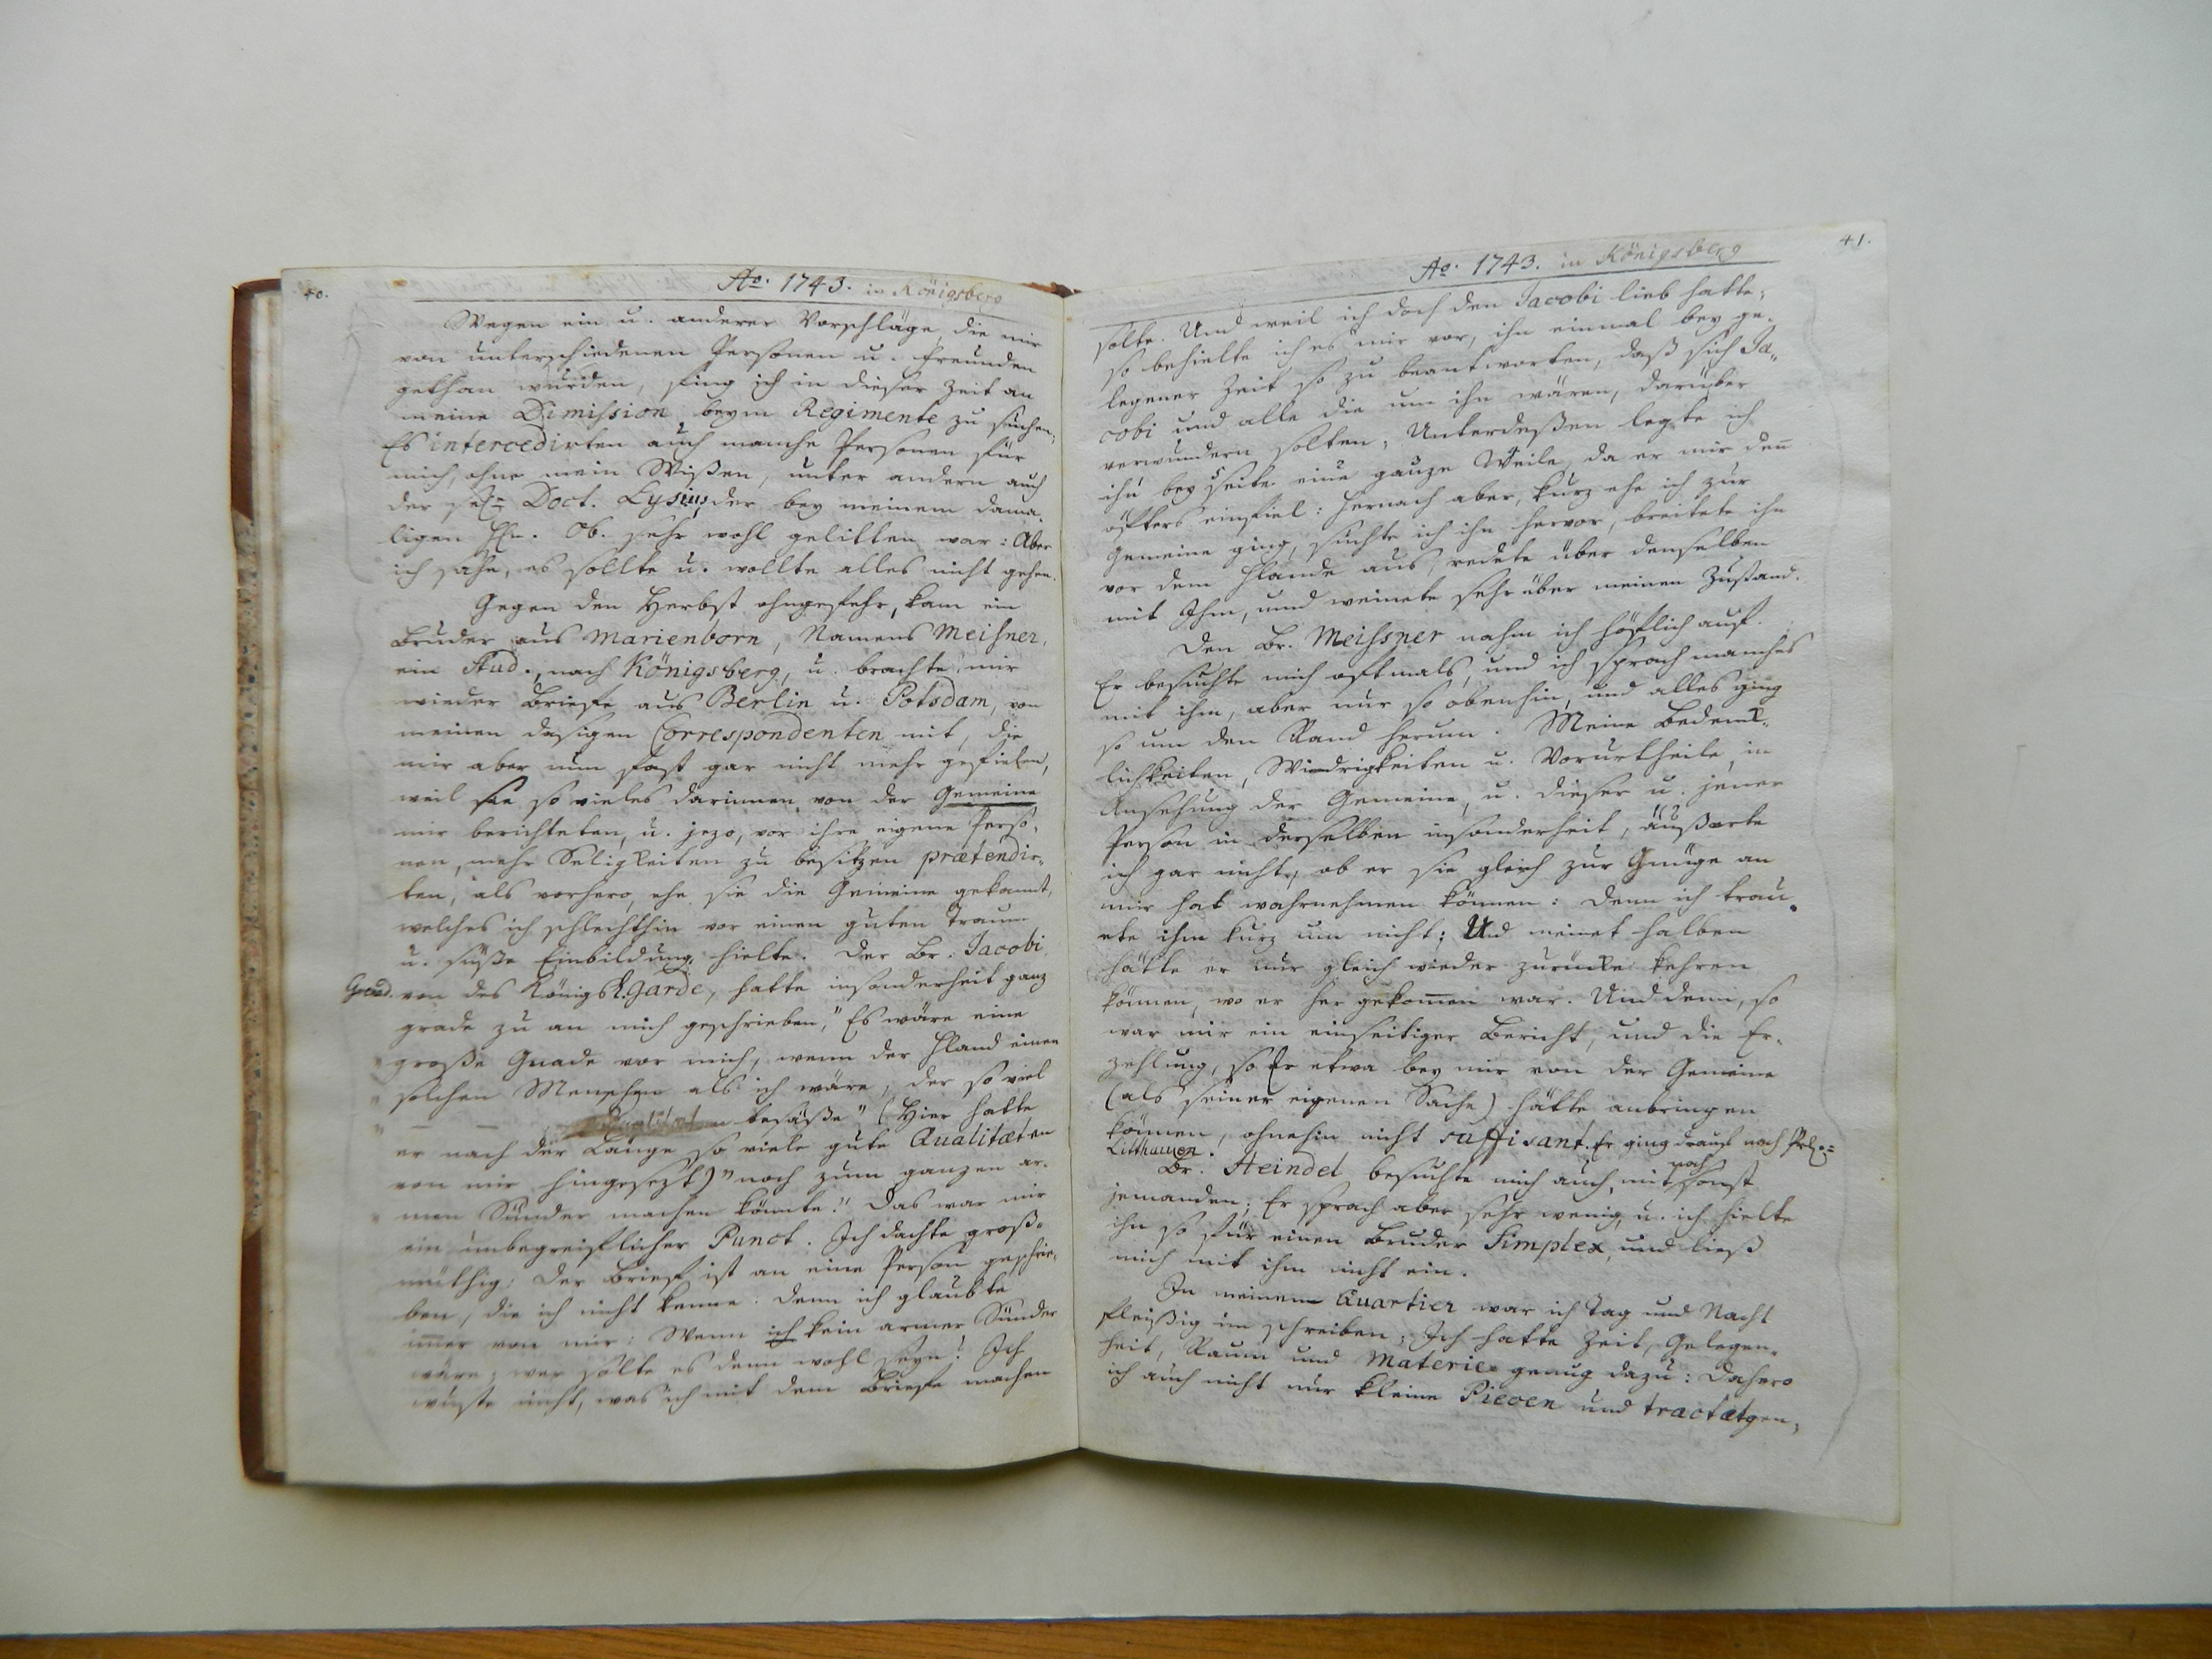 40.
Ao. 1743. in Königsberg
Wegen ein u. anderer Vorschläge, die mir
von unterschiedenen Personen u. Freunden
gethan wurden, fing ich in dieser Zeit an
meine Dimission beym Regimente zu suchen;
Es intercedirten auch manche Personen für
mich, ohne mein Wißen, unter andern auch
der Doct. Lysius, der bey meinem dama-
ligen Ob. sehr wohl gelitten war: Aber
ich sahe, es sollte u. wollte alles nicht gehen.
Gegen den Herbst ohngefehr, kam ein
Bruder aus Marienborn, Namens Meisner,
ein Stud., nach Königsberg, u. brachte mir
wieder Briefe aus Berlin u. Potsdam, von
meinen dasigen Correspondenten mit, die
mir aber nun fast gar nicht mehr gefielen,
weil sie so vieles darinnen von der Gemeine
mir berichteten, u. jezo, vor ihre eigene Perso-
nen, mehr Seligkeiten zu besitzen prætendir-
ten, als vorhero, ehe sie die Gemeine gekannt,
welches ich schlechthin vor einen guten Traum
u. süße Einbildung hielte. Der Br. Jacobi
von des Königs L. Garde, hatte insonderheit ganz
grade zu an mich geschrieben, "Es wäre eine
" große Gnade vor mich, wenn der Hland einen
" solchen Menschen als ich wäre, der so viel
" — — besäße" (Hier hatte
er nach der Länge so viele gute Qualitæten
von mir hingesezt) "noch zum ganzen ar-
" men Sünder machen könnte." Das war mir
ein unbegreiflicher Punct. Ich dachte groß-
müthig: Der Brief ist an eine Person geschrie-
ben, die ich nicht kenne: Denn ich glaubte
immer von mir: Wenn ich kein armer Sünder
wäre; wer solte es denn wohl seyn? Ich
wuste nicht, was ich mit dem Briefe machen
41.
Ao. 1743. in Königsberg
solte. Und weil ich doch den Jacobi lieb hatte;
so behielte ich es mir vor, ihn einmal bey ge-
legener Zeit so zu beantworten, daß sich Ja-
cobi und alle die um ihn wären, darüber
verwundern solten; Unterdeßen legte ich
ihn bey seite eine ganze Weile, da er mir denn
öfters einfiel: Hernach aber, kurz ehe ich zur
Gemeine ging, suchte ich ihn hervor, breitete ihn
vor dem Hlande aus, redete über denselben
mit Ihm, und weinete sehr über meinen Zustand.
Den Br. Meissner nahm ich höflich auf.
Er besuchte mich oftmals, und ich sprach manches
mit ihm, aber nur so obenhin, und alles ging
so um den Rand herum. Meine Bedenk-
lichkeiten, Wiedrigkeiten u. Vorurtheile, in
Ansehung der Gemeine, u. dieser u. jener
Person in derselben insonderheit, äußerte
ich gar nicht, ob er sie gleich zur Gnüge an
mir hat wahrnehmen können: Denn ich trau-
ete ihm kurz um nicht; Und meinet halben
hätte er nur gleich wieder zurücke kehren
können, wo er her gekommen war. Und denn, so
war mir ein einseitiger Bericht, und die Er-
zehlung, so Er etwa bey mir von der Gemeine
(als seiner eigenen Sache) hätte anbringen
können, ohnehin nicht suffisant. Er ging drauf nach
Litthauen.
Br. Steindel besuchte mich auch, mit noch sonst
jemanden; Er sprach aber sehr wenig, u. ich hielte
ihn so für einen Bruder Simplex, und ließ
mich mit ihm nicht ein.
In meinem Quartier war ich Tag und Nacht
fleißig im schreiben; Ich hatte Zeit, Gelegen-
heit, Raum und Materie genug dazu: Dahero
ich auch nicht nur kleine Piecen und tractætgen,